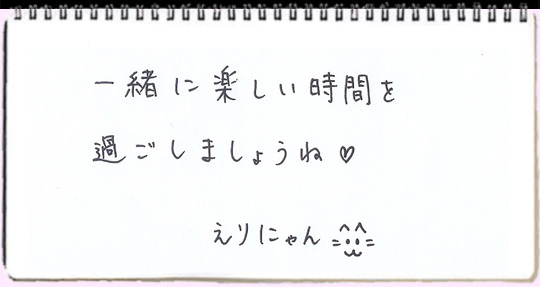 一緒に楽しい時間を
過ごしましょうね♡
えりにゃん